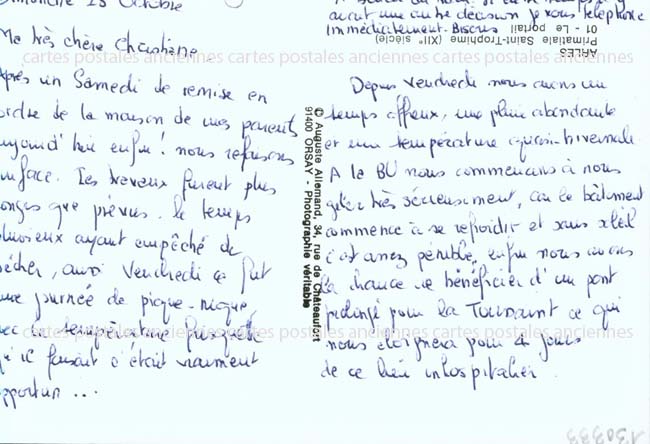 Dimanche 25 Octobre
Ma très chère Christiane
Après un Samedi de remise en
ordre de la maison de mes parents
aujourd'hui enfin! nous refaisons
surface. Les travaux furent plus
longs que prévus. le temps
pluvieux ayant empêché de
sécher, aussi Vendredi ce fut
une journée de pique-nique
avec la température
qu'il faisait c'était vraiment
opportun ...
avait une autre décision je vous téléphone
immédiatement. Bisous
Depuis Vendredi nous avons un
temps affreux, une pluie abondante
et une température quasi-hivernale
A la BU nous commençons à nous
geler très sérieusement, car le bâtiment
commence à se refroidir et sans soleil
c'est assez pénible, enfin nous avons
la chance de bénéficier d'un pont
prolongé pour la Toussaint ce qui
nous éloignera pour 4 jours
de ce lieu inhospitalier.
ARLES
Primatiale Saint-Trophime (XIIe siècle)
01 - Le portail
© Auguste Allemand, 34, rue de Châteaufort
91400 ORSAY - Photographie véritable
cartes postales anciennes cartes postales anciennes cartes postales anciennes
cartes postales anciennes cartes postales anciennes cartes postales anciennes
130333